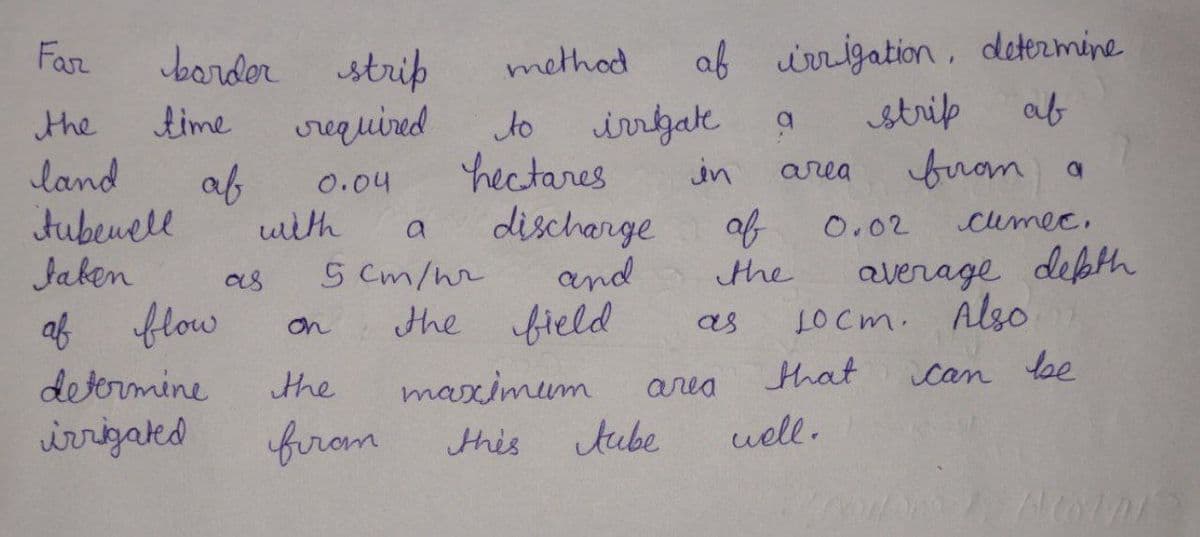 For border strip method of irrigation, determine
the time required to irrigate a strip of
land of 0.04 hectares in area from a
tubewell with a discharge of 0.02 cumec.
taken as 5 cm/hr and the average depth
of flow on the field as 10cm. Also
determine the maximum area that can be
irrigated from this tube well.